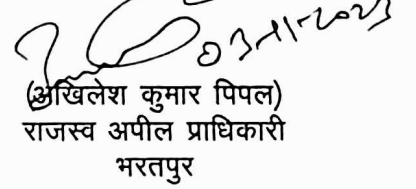 03-11-2023
(अखिलेश कुमार पिपल)
राजस्व अपील प्राधिकारी
भरतपुर